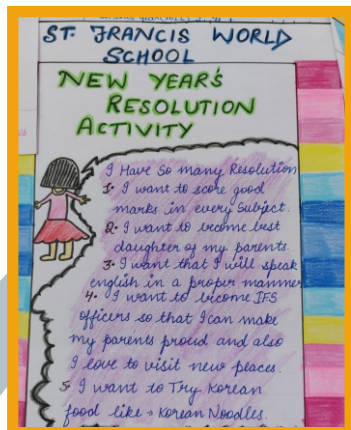 ST. FRANCIS WORLD
SCHOOL
NEW YEAR'S
RESOLUTION
ACTIVITY
I Have So many Resolution
1. I want to score good
marks in every subject.
2. I want to become best
daughter of my parents.
3. I want that I will speak
english in a proper manner
4. I want to become IFS
officers so that I can make
my parents proud and also
I love to visit new peaces.
5. I want to Try Korean
food like → Korean Noodles.